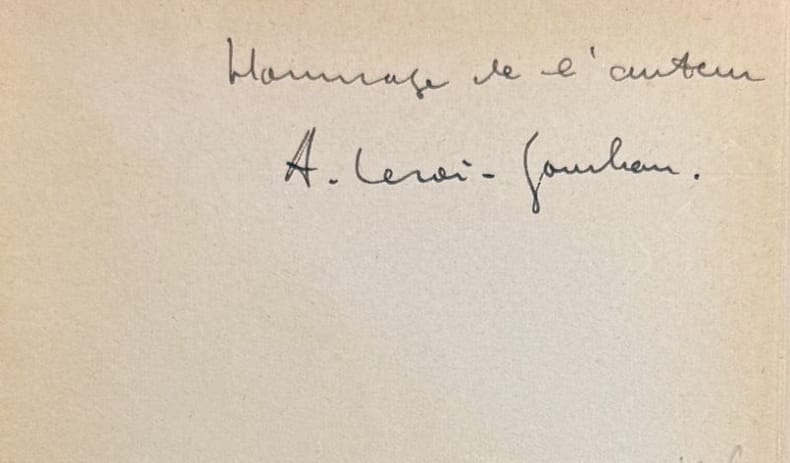 Hommage de l'auteur
A. Leroi-Gourhan.